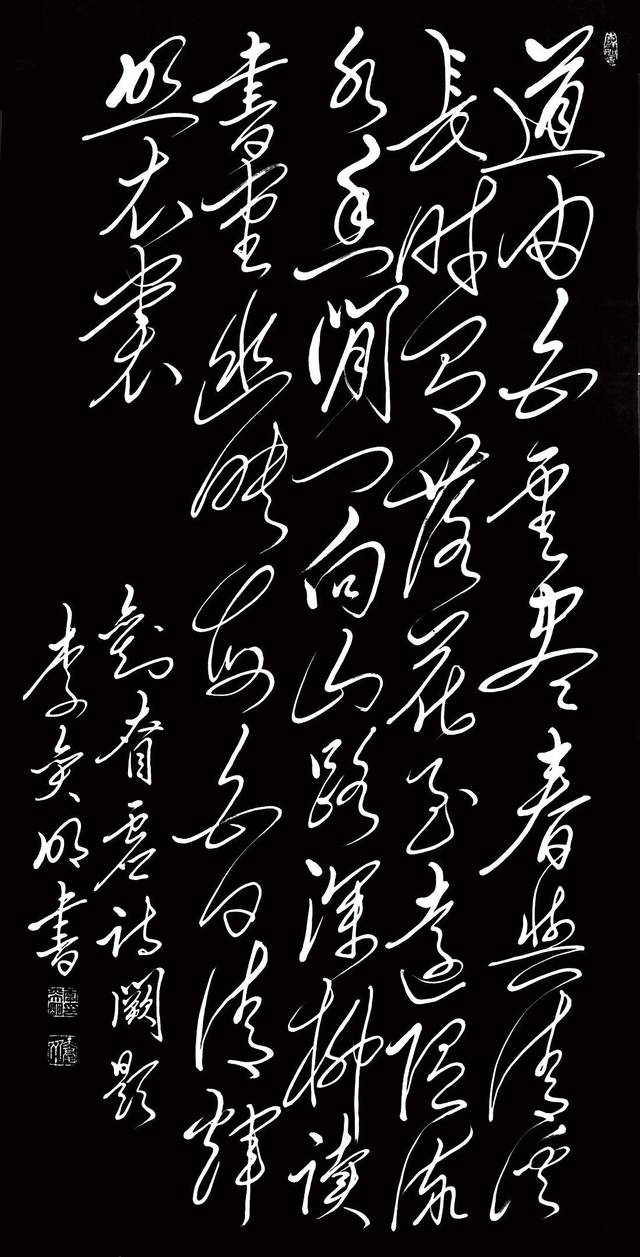 道由白雲盡春與清溪
長時有落花至遠隨流
水香閒門向山路深柳讀
書堂幽映每白日清輝
照衣裳
劉眘虛詩闕題
李明書